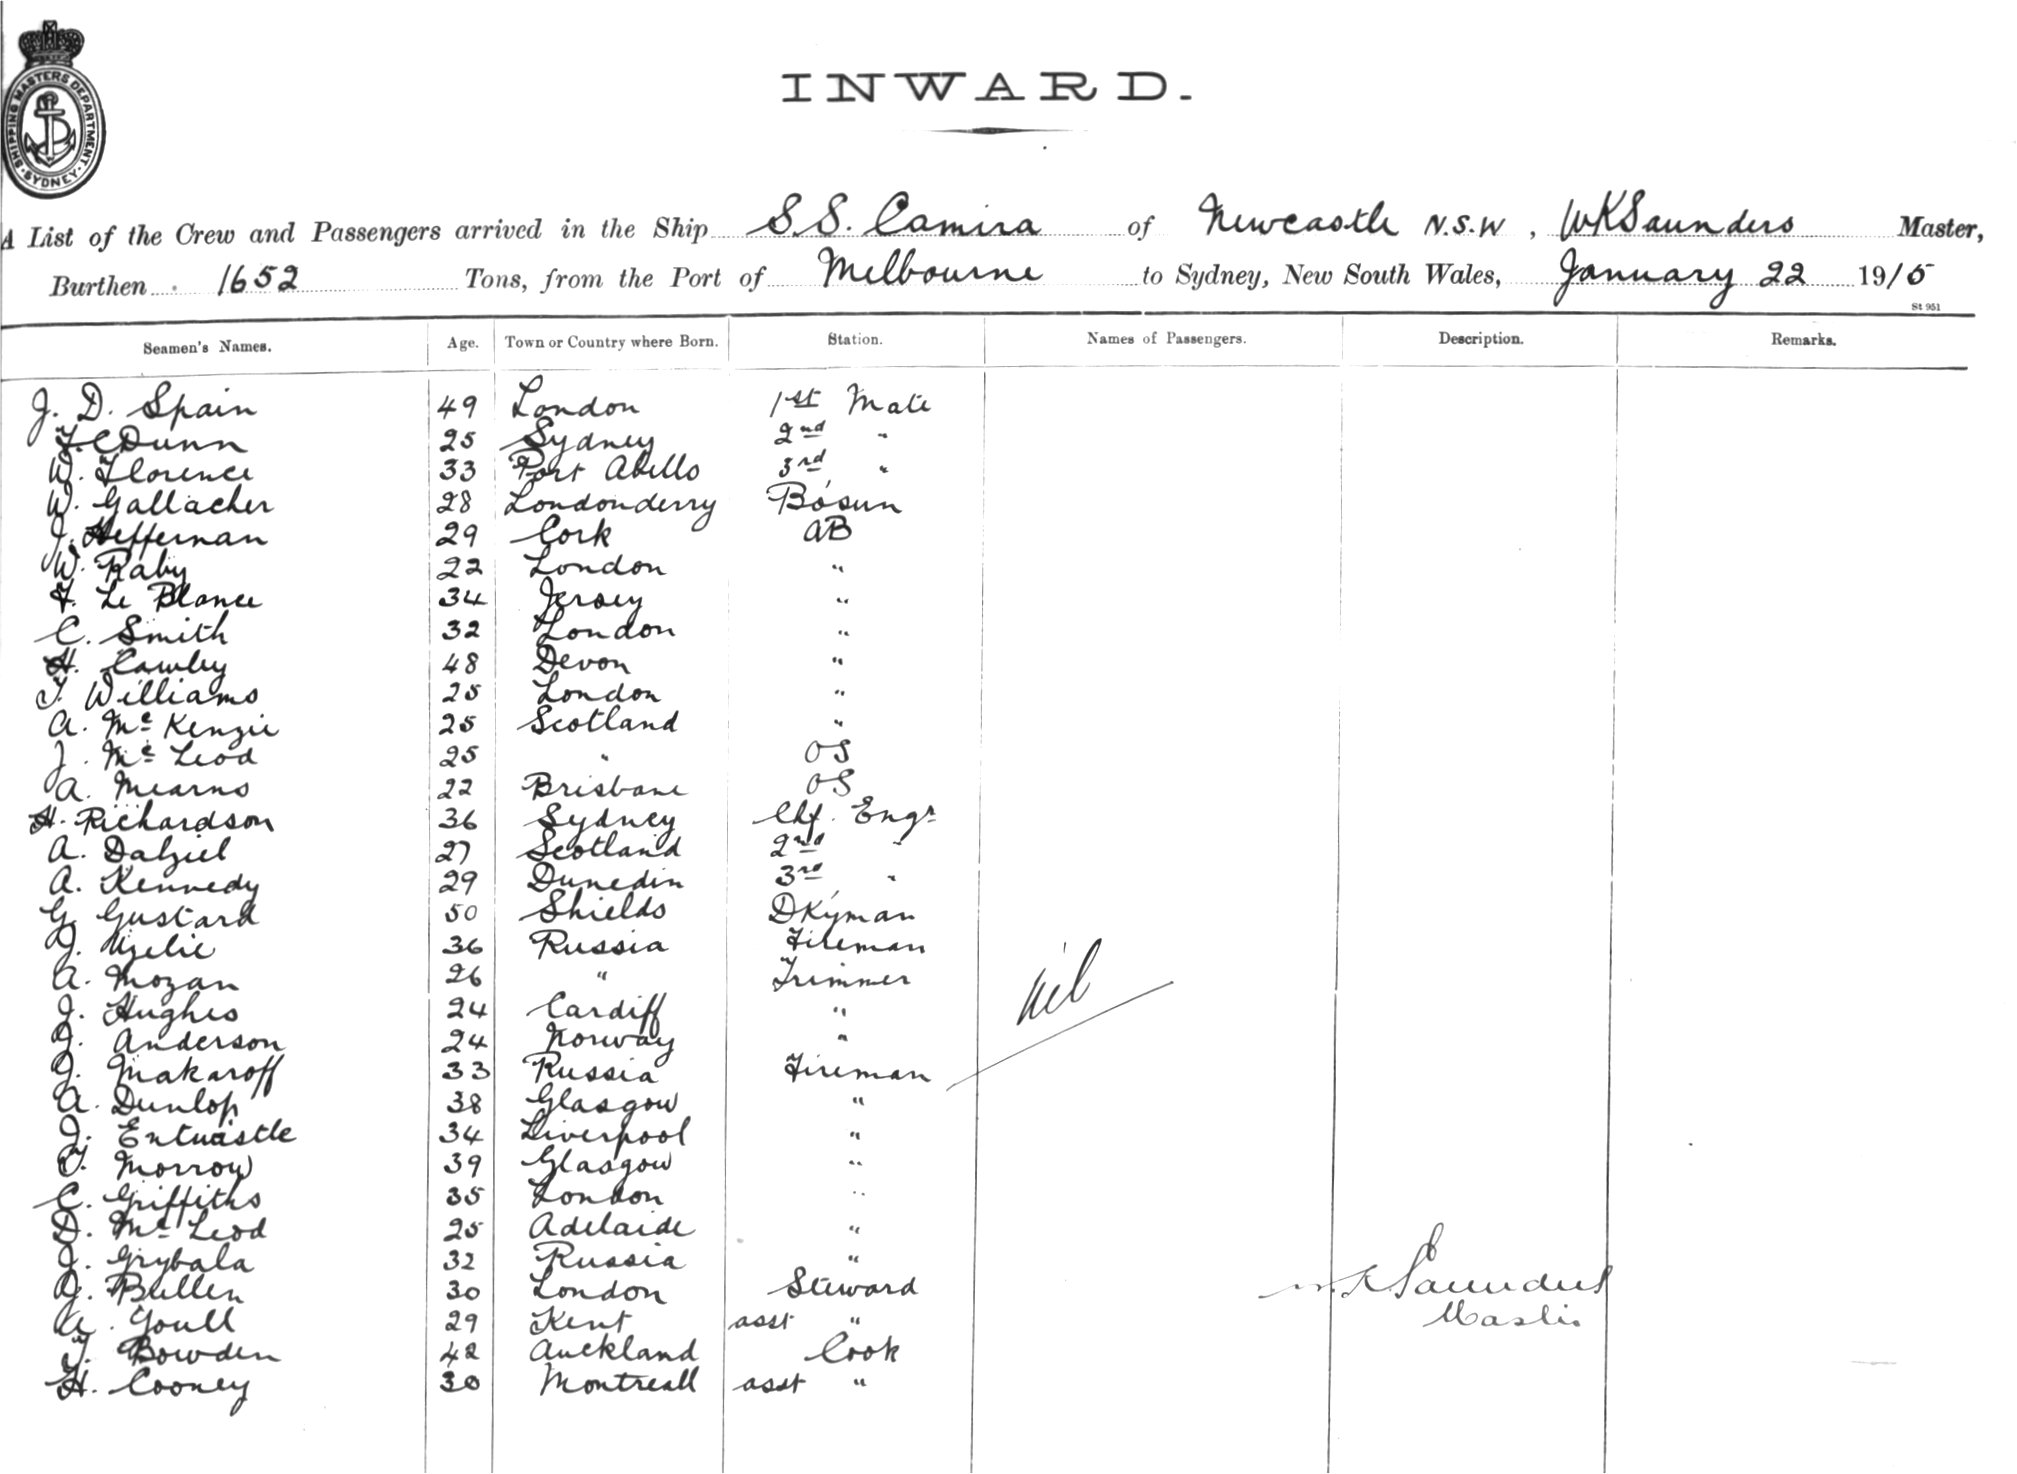 SHIPPING MASTERS DEPARTMENT. SYDNEY.
INWARD.
A List of the Crew and Passengers arrived in the Ship S.S. Camira of Newcastle N.S.W, WKSaunders Master,
Burthen 1652 Tons, from the Port of Melbourne to Sydney, New South Wales, January 22 1915
St 951
Seamen's Names. Age. Town or Country where Born. Station. Names of Passengers. Description. Remarks.
J. D. Spain 49 London 1st Mate
F C Dunn 25 Sydney 2nd "
W. Florence 33 Port Abello 3rd "
W. Gallacher 28 Londonderry Bosun
J. Heffernan 29 Cork AB
W. Raby 22 London "
F. Le Blance 34 Jersey "
C. Smith 32 London "
H. Cawley 48 Devon "
T. Williams 25 London "
A. Mc Kenzie 25 Scotland "
J. Mc Leod 25 " OS
A. Mearns 22 Brisbane OS
H. Richardson 36 Sydney Chf. Engr
A. Dalziel 27 Scotland 2nd "
A. Kennedy 29 Dunedin 3rd "
G. Gustard 50 Shields Dkyman
J. 36 Russia Fireman
A. Mozan 26 " Trimmer
J. Hughes 24 Cardiff "
J. Anderson 24 Norway "
J. Makaroff 33 Russia Fireman
nil
A. Dunlop 38 Glasgow "
J. Entwistle 34 Liverpool "
T. Morrow 39 Glasgow "
C. Griffiths 35 London "
D. Mc Leod 25 Adelaide "
J. Grybala 32 Russia "
J. Bullen 30 London Steward
W.K Saunders
A. Youll 29 Kent asst "
Master
T. Bowden 42 Auckland Cook
H. Cooney 30 Montreall asst "